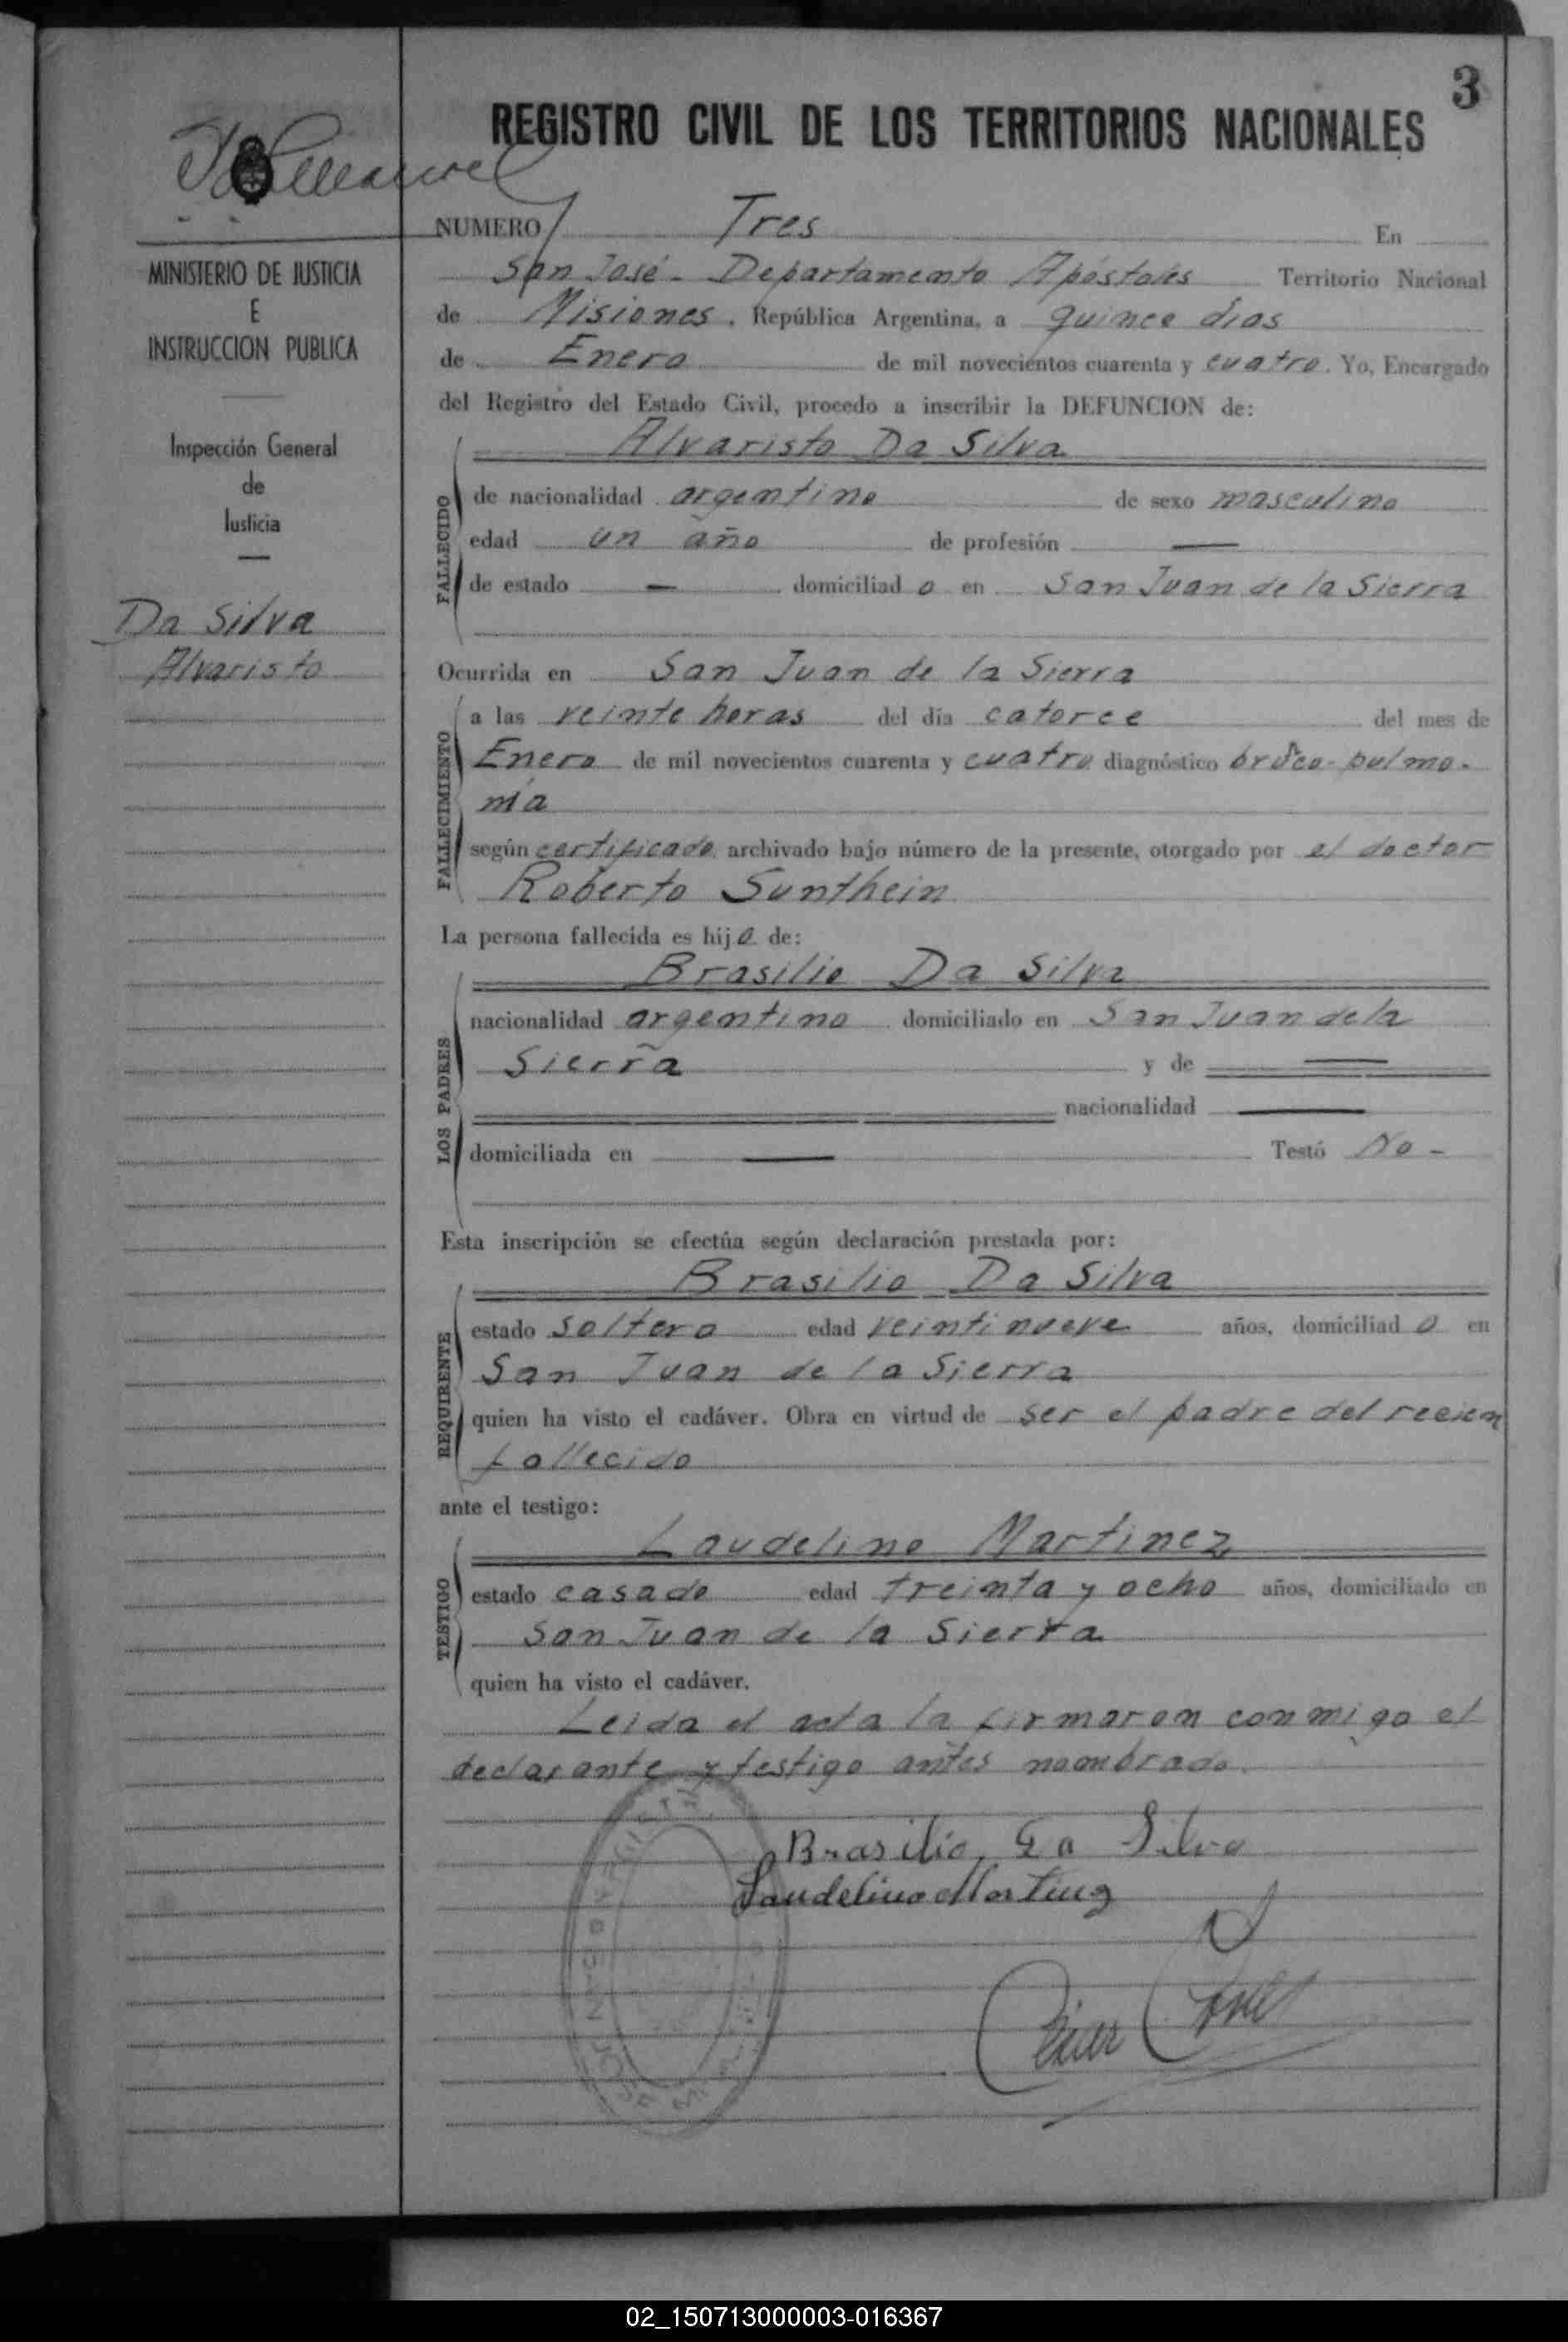 3
REGISTRO CIVIL DE LOS TERRITORIOS NACIONALES
MINISTERIO DE JUSTICIA
E
INSTRUCCION PUBLICA
Inspección General
de
Justicia
Da Silva
Alvaristo
NUMERO Tres En
San José - Departamento Apóstoles Territorio Nacional
de Misiones. República Argentina, a quince dias
de Enero de mil novecientos cuarenta y cuatro. Yo, Encargado
del Registro del Estado Civil, procedo a inscribir la DEFUNCION de:
Alvaristo Da Silva
FALLECIDO
de nacionalidad argentino de sexo masculino
edad un año de profesión —
de estado — domiciliad o en San Juan de la Sierra
Ocurrida en San Juan de la Sierra
FALLECIMIENTO
a las veinte horas del día catorce del mes de
Enero de mil novecientos cuarenta y cuatro diagnóstico brōco-pulmo-
nía
según certificado archivado bajo número de la presente, otorgado por el doctor
Roberto Sunthein
La persona fallecida es hijo de:
Brasilio Da Silva
LOS PADRES
nacionalidad argentino domiciliado en San Juan de la
Sierra y de —
nacionalidad —
domiciliada en — Testó No -
Esta inscripción se efectúa según declaración prestada por:
Brasilio Da Silva
REQUIRENTE
estado soltero edad veintinueve años, domiciliad o en
San Juan de la Sierra
quien ha visto el cadáver. Obra en virtud de ser el padre del recien
fallecido
ante el testigo:
Laudelino Martinez
TESTIGO
estado casado edad treinta y ocho años, domiciliado en
San Juan de la Sierra
quien ha visto el cadáver.
Leida el acta la firmaron conmigo el
declarante y testigo antes nombrado.
Brasilio Da Silva
Laudelino Martinez
02_150713000003-016367